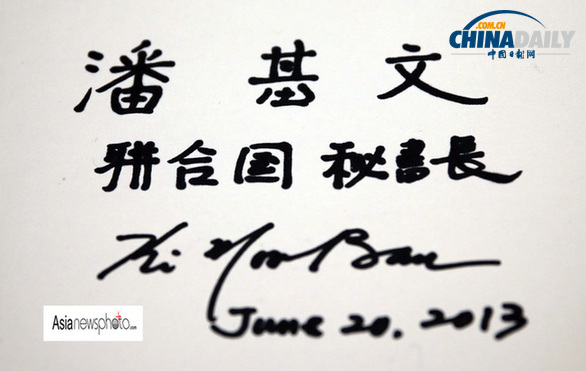 .COM.CN
CHINADAILY
中国日报网
潘基文
联合国 秘書長
Ki Moon Ban
June 20, 2013
Asianewsphoto.com